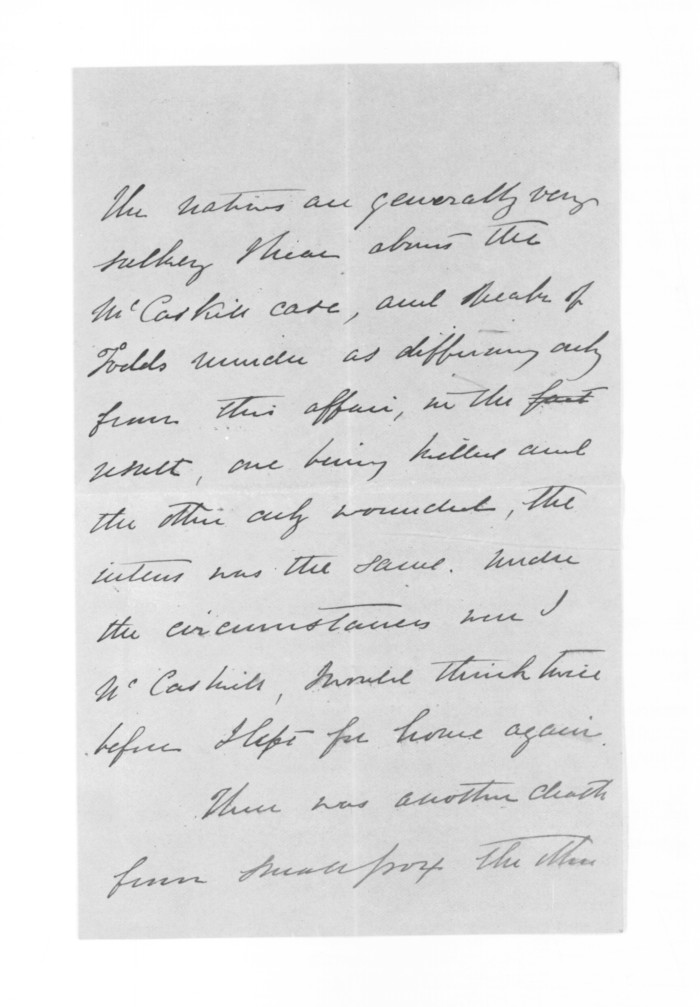 The natives are generally very
sulkey I hear about the
McCaskill case, and speaks of
Todds murder as differing only
from this affair, in the fact
result, one being killed and
the other only wounded, the
intent was the same. Under
the circumstances were I
McCaskill, I would think twice
before I left for home again.
There was another death
from small pox the other